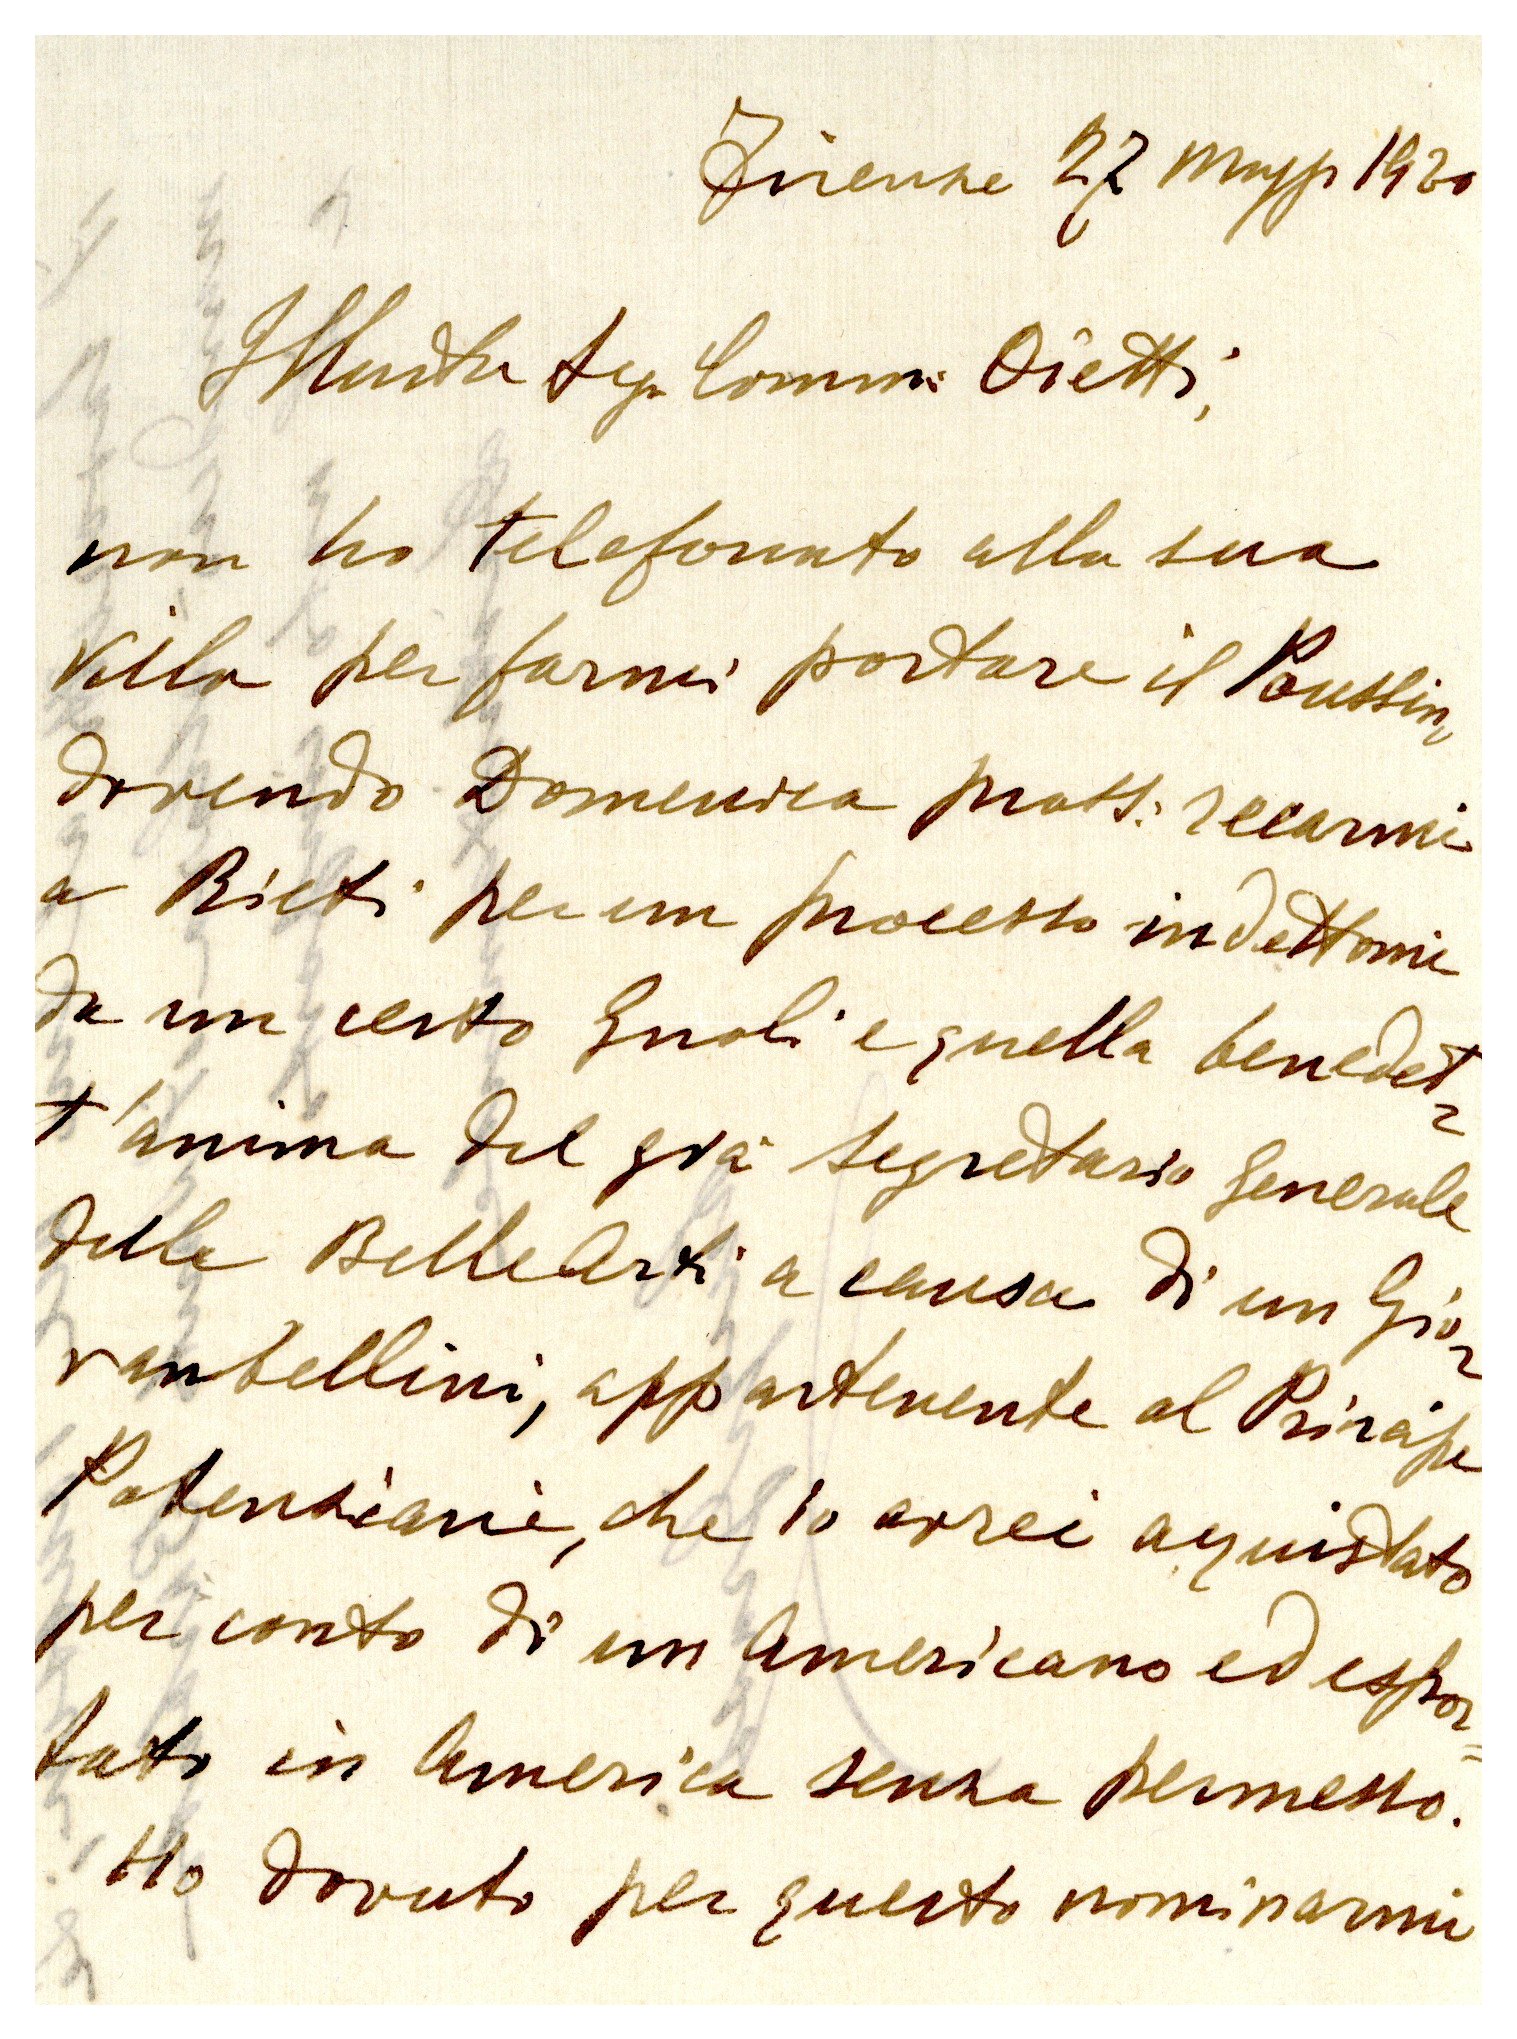 Firenze 27 Magg 1920
Illustre Sigr Comm: Oietti,
non ho telefonato alla sua
villa per farmi portare il Poussin,
dovendo Domenica pross: recarmi
a Rieti per un processo indettomi
da un certo Gnoli e quella benedet-
t'anima del già segretario Generale
delle Belle Arti a causa di un Gio-
vanbellini, appartenente al Principe
Potenziani, che io avrei aquistato
per conto di un Americano ed espor=
tato in America senza permesso.
Ho dovuto per questo nominarmi